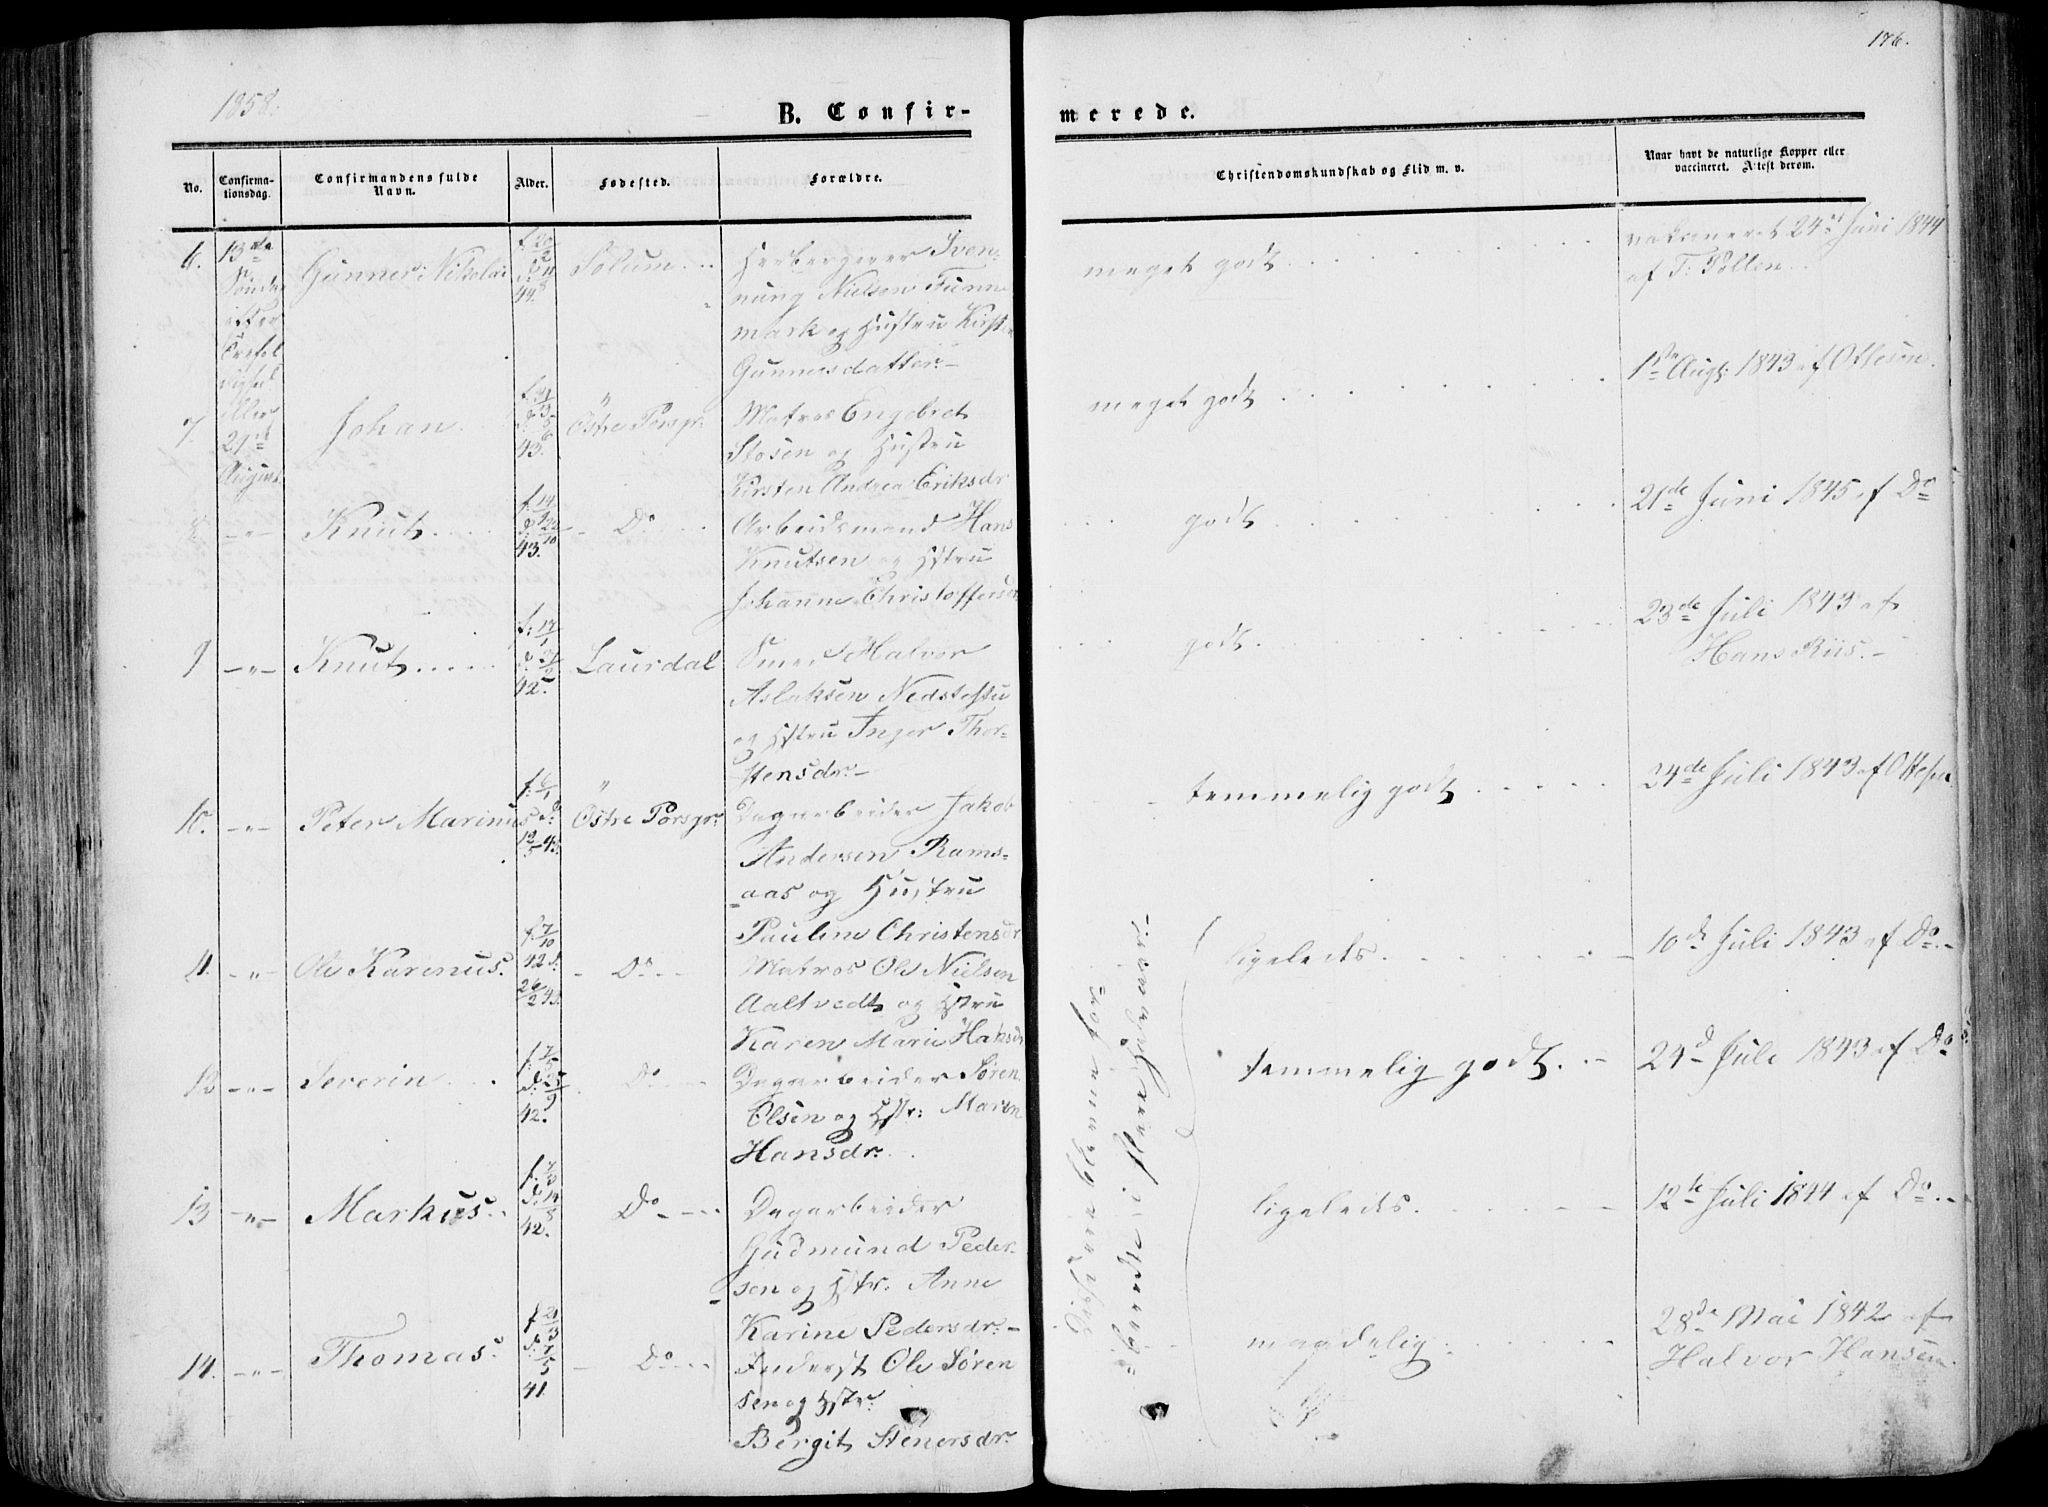 1858.
176.
B. Confirmerede.
No.
Confirmationsdag.
Confirmandens fulde Navn.
Alder.
Fødested.
Forældre.
Christendomskundskab og Flid m. v.
Naar havt de naturlige Kopper eller vaccineret. Attest derom.
6.
13de
Søndag
efter
Trefol
dighed
eller
29de
August
Gunner Nikolai
44.
Solum
Herbergerer Sven-
nung Nielsen Funne
mark og Hustru Kirsten
Gunnersdatter.
meget godt
vaksineret 24d Juni 1844
af T: Pollen.
7.
Johan
43.
Østre Porsgr:
Matros Engebret
Stosen og Hustru
Kirsten Andrea Eriksdr
meget godt
1ste Augs: 1843 af Ottesen.
8 -"- Knut
43.
Do
Arbeidsmand Hans
Knutsen og Hstru
Johanne Christoffersdr
godt
21de Juni 1845 af Do
9 -"- Knut
f: 17/1
42.
Laurdal
Halvor
Aslaksen Nedstøstu
og Hstru Inger Thor-
stensdr:
godt
23de Juli 1843 af
Hans Riis.
10. -"- Peter Marinus
f: 6/1 d: 12/5 43.
Østre Porsgr:
Dagarbeider Jakob
Andersen Rams-
aas og Hustru
Pauline Christensdr
temmelig godt
24de Juli 1843 af Ottesen
11. -"- Ole Karenus.
f. 7/10 42 d. 26/2 43.
Do
Matros Ole Nielsen
Aaltvedt og Hstru
Karen Marie Haksdr
ligeledes
10d Juli 1843 af Do
12 -"- Severin
42.
Do
Dagarbeider Søren
Olsen og Hstr: Maren
Hansdr.
temmelig godt.
24d Juli 1843 af Do
13 -"- Markus
42.
Do
Dagarbeider
Gudmund Peder-
sen og Hstr. Anne
Karine Pedersdr.
ligeledes.
12te Juli 1844 af Do
14. -"- Thomas.
41.
Do
Inderst Ole Søren
sen og Hstr.
Bergit Stenersdr.
maadelig.
28de Mai 1842 af
Halvor Hansen.
Disse ere blevne for-
beredte i flere Gange